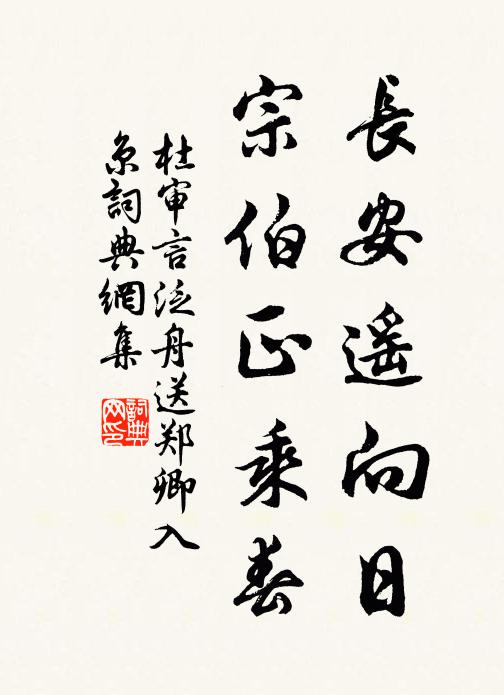 長安遥向日
宗伯正乘春
杜审言泛舟送郑卿入
京詞典網集
詞典
网印